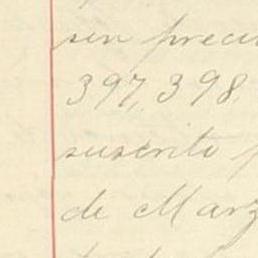 sin preci
397, 398
suscrito
de Marz